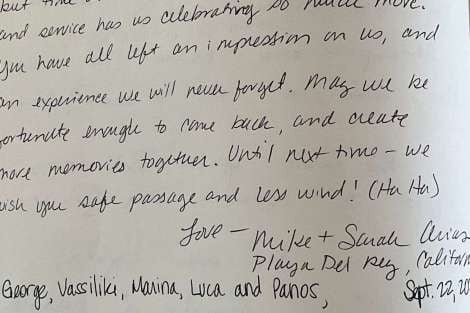 but time
and service has us celebrating so much more.
You have all left an impression on us, and
an experience we will never forget. May we be
fortunate enough to come back, and create
more memories together. Until next time - we
wish you safe passage and less wind! (Ha Ha)
Love - Mike + Sarah Arias
Playa Del Rey, Californ
George, Vassiliki, Marina, Luca and Panos,
Sept. 22, 20